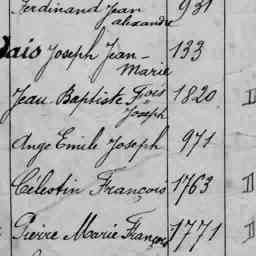 Ferdinand Jean 931
alexandre
dais Joseph Jean- 133
Marie
Jean-Baptiste Fois 1820
Joseph
Ange Emile Joseph 971
Célestin François 1763
Pierre Marie François 1771